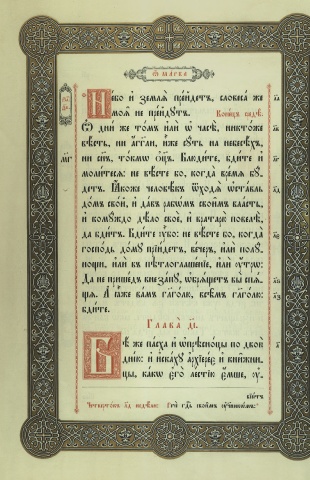 Ѿ МАРКА
Небо и҆ землѧ̀ прейдетъ, словеса́ же
моѧ̑ не прейдꙋтъ. Коне́цъ недѣ́ли.
Ѿ дни́ же то́мъ и҆лѝ ѡ҆ часѣ̀, никто́же
вѣ́сть, ни а҆́гг҃ли, и҆̀же сꙋ́ть на небесѣ́хъ,
ни сн҃ъ, то́кмѡ ѻ҆ц҃ъ. Блюди́те, бди́те и҆
моли́тесѧ: не вѣ́сте бо, когда̀ вре́мѧ бꙋ́-
детъ. Ꙗ҆́коже человѣ́къ ѿходѧ̀ ѡ҆ста́вль
до́мъ сво́й, и҆ да́въ рабѡ́мъ свои̑мъ вла́сть,
и҆ комꙋ́ждо дѣ́ло своѐ, и҆ врата́рю повелѣ̀,
да бди́тъ. Бди́те ᲂу҆̀бо: не вѣ́сте бо, когда̀
господь до́мꙋ прїи́детъ, ве́черъ, и҆лѝ полꙋ́-
нощи, и҆лѝ въ пѣтлоглаше́нїе, и҆лѝ ᲂу҆́трѡ:
Да не прише́дъ внеза́пꙋ, ѡ҆брѧ́щетъ вы̀ спѧ́-
щѧ. А҆ ꙗ҆̀же ва́мъ гл҃го́лю, всѣ̑мъ гл҃го́лю:
бди́те.
Глава̀ д҃і.
Бѣ́ же па́сха и҆ ѡ҆прѣсно́цы по двою̀
дню̑: и҆ и҆ска́хꙋ а҆рхїере́є и҆ кни́жни-
цы, ка́кѡ є҆го̀ ле́стїю є҆́мше, ᲂу҆-
бїю́тъ